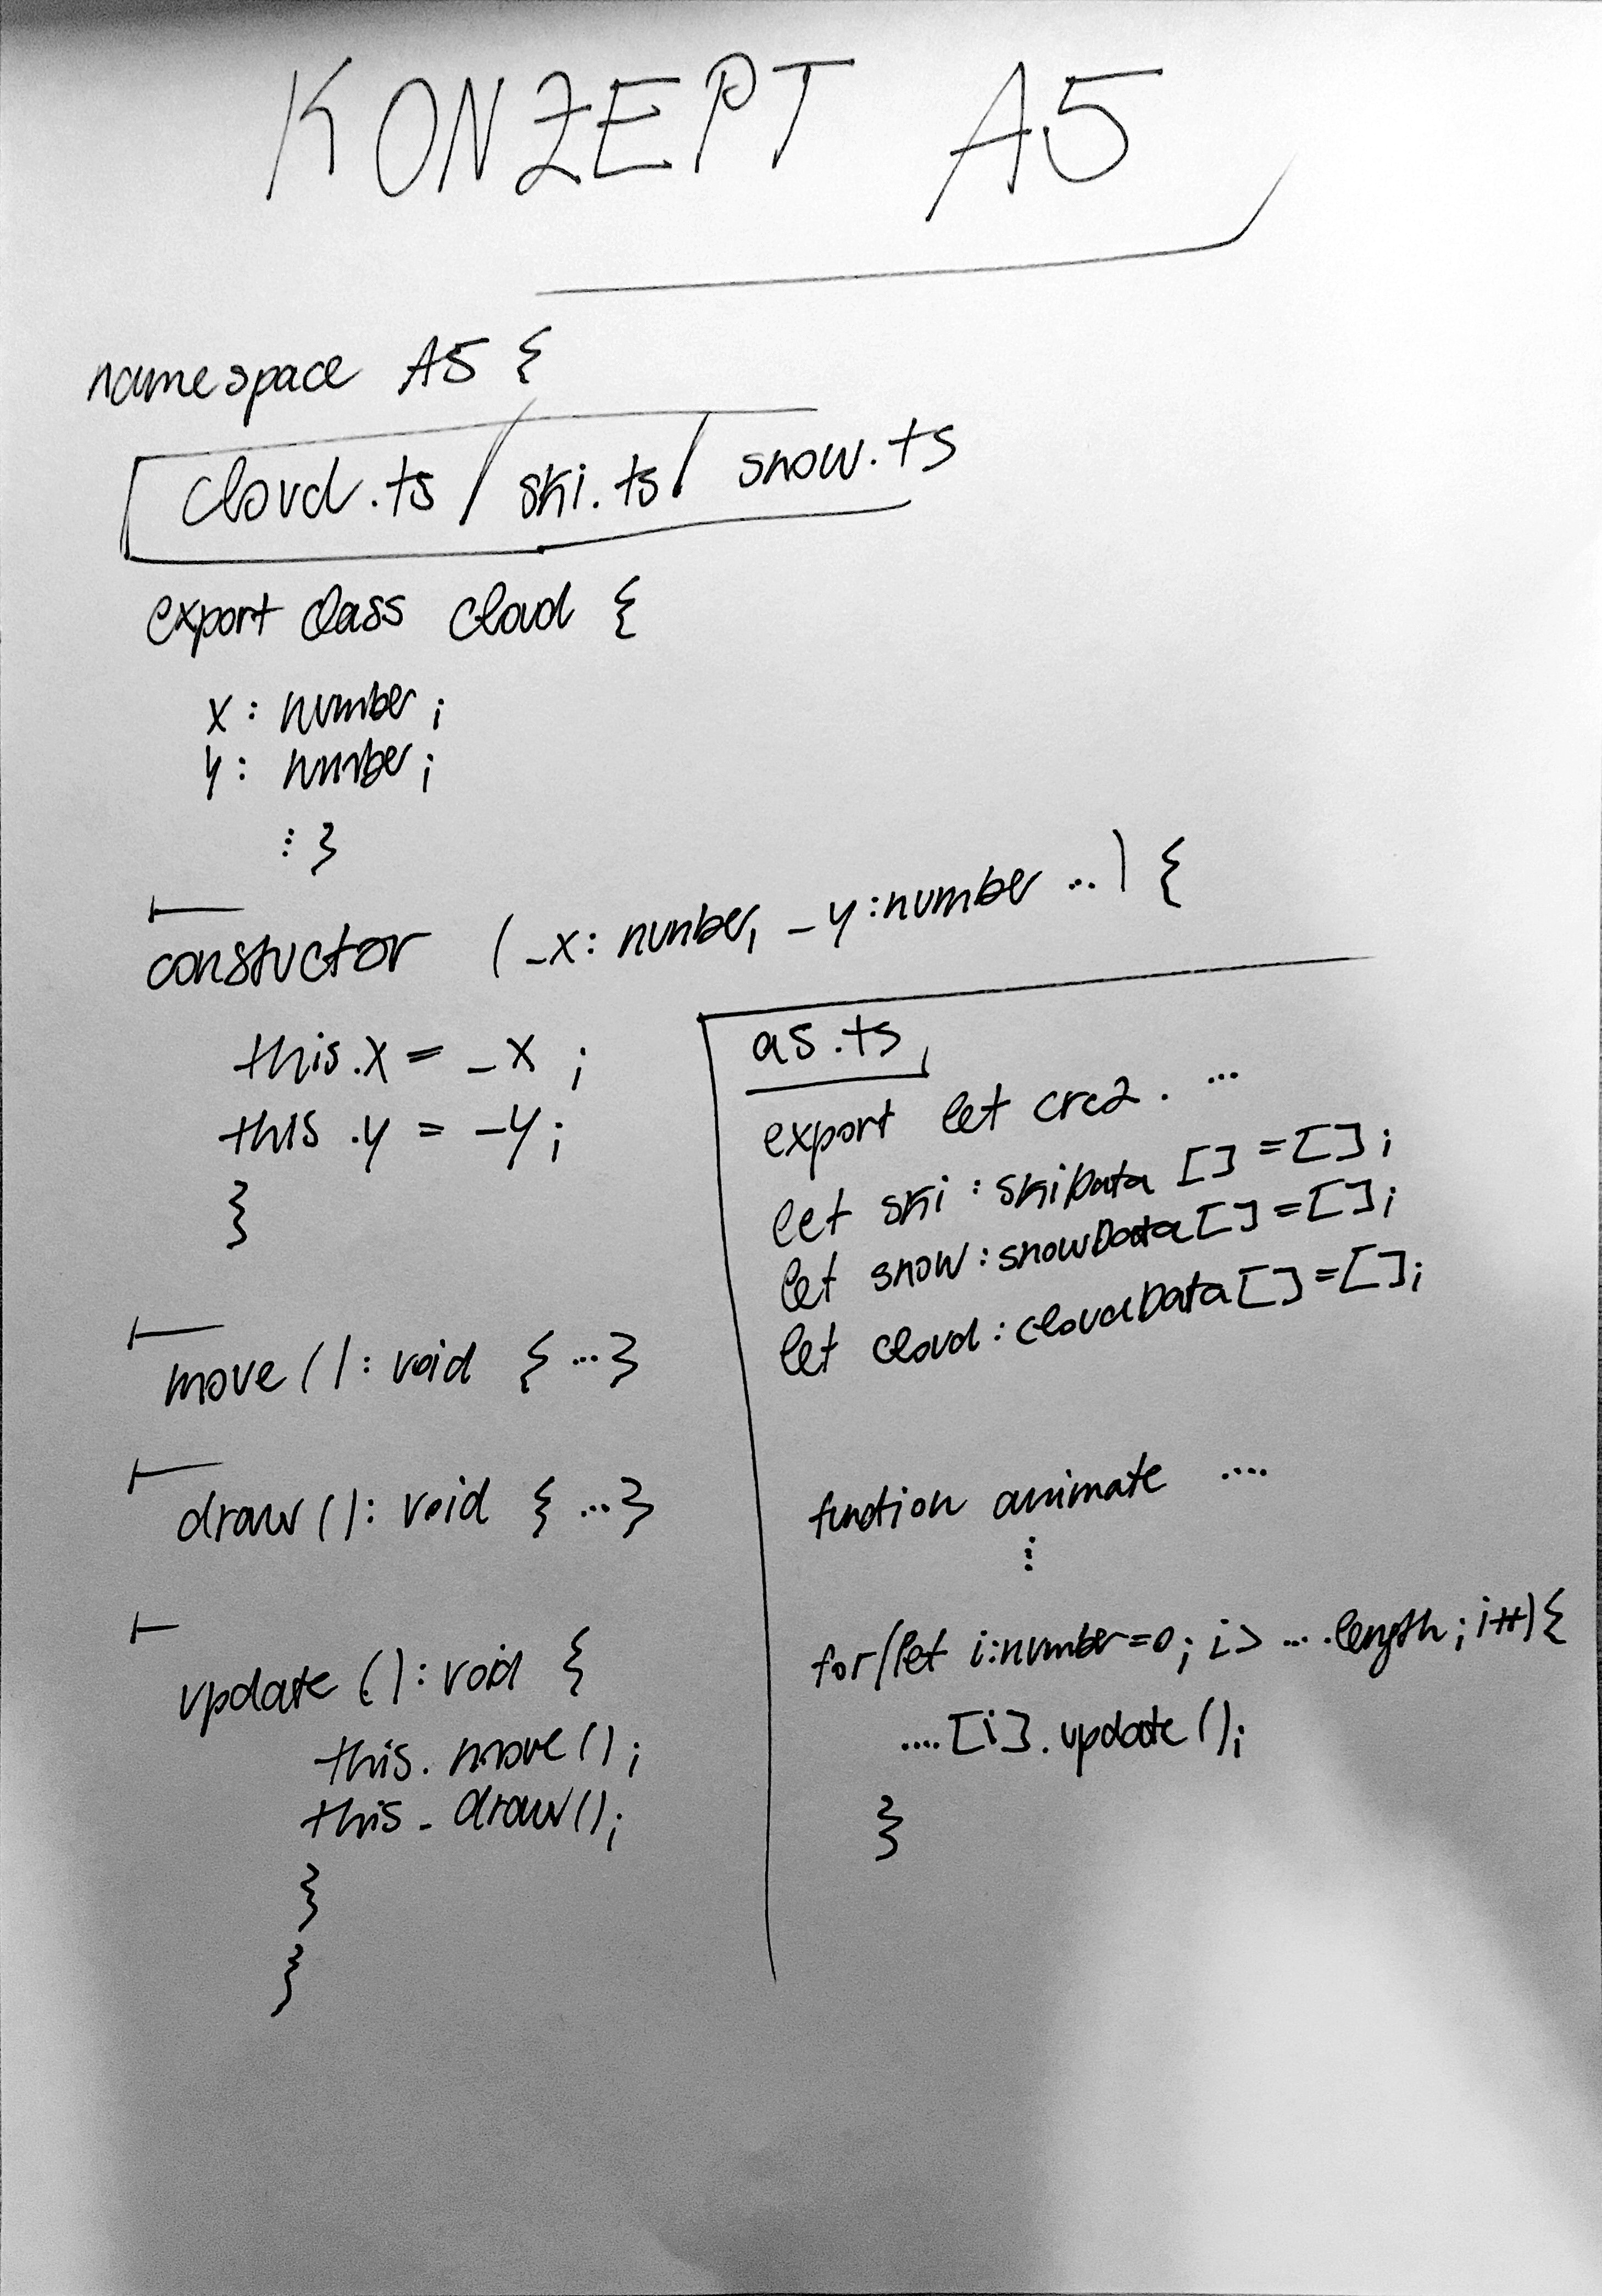 KONZEPT A5
namespace A5 {
cloud.ts / ski.ts / snow.ts
export class cloud {
x: number;
y: number;
⋮ }
constuctor (_x: number, _y: number ...) {
this.x = _x ;
this.y = _y;
}
move(): void { ... }
draw(): void { ... }
update(): void {
this.move();
this.draw();
}
}
a5.ts
export let crc2. ...
let ski : skiData [] = [];
let snow : snowData [] = [];
let cloud : cloudData [] = [];
function animate ....
⋮
for(let i:number=0; i> ... .length; i++){
.... [i].update();
}